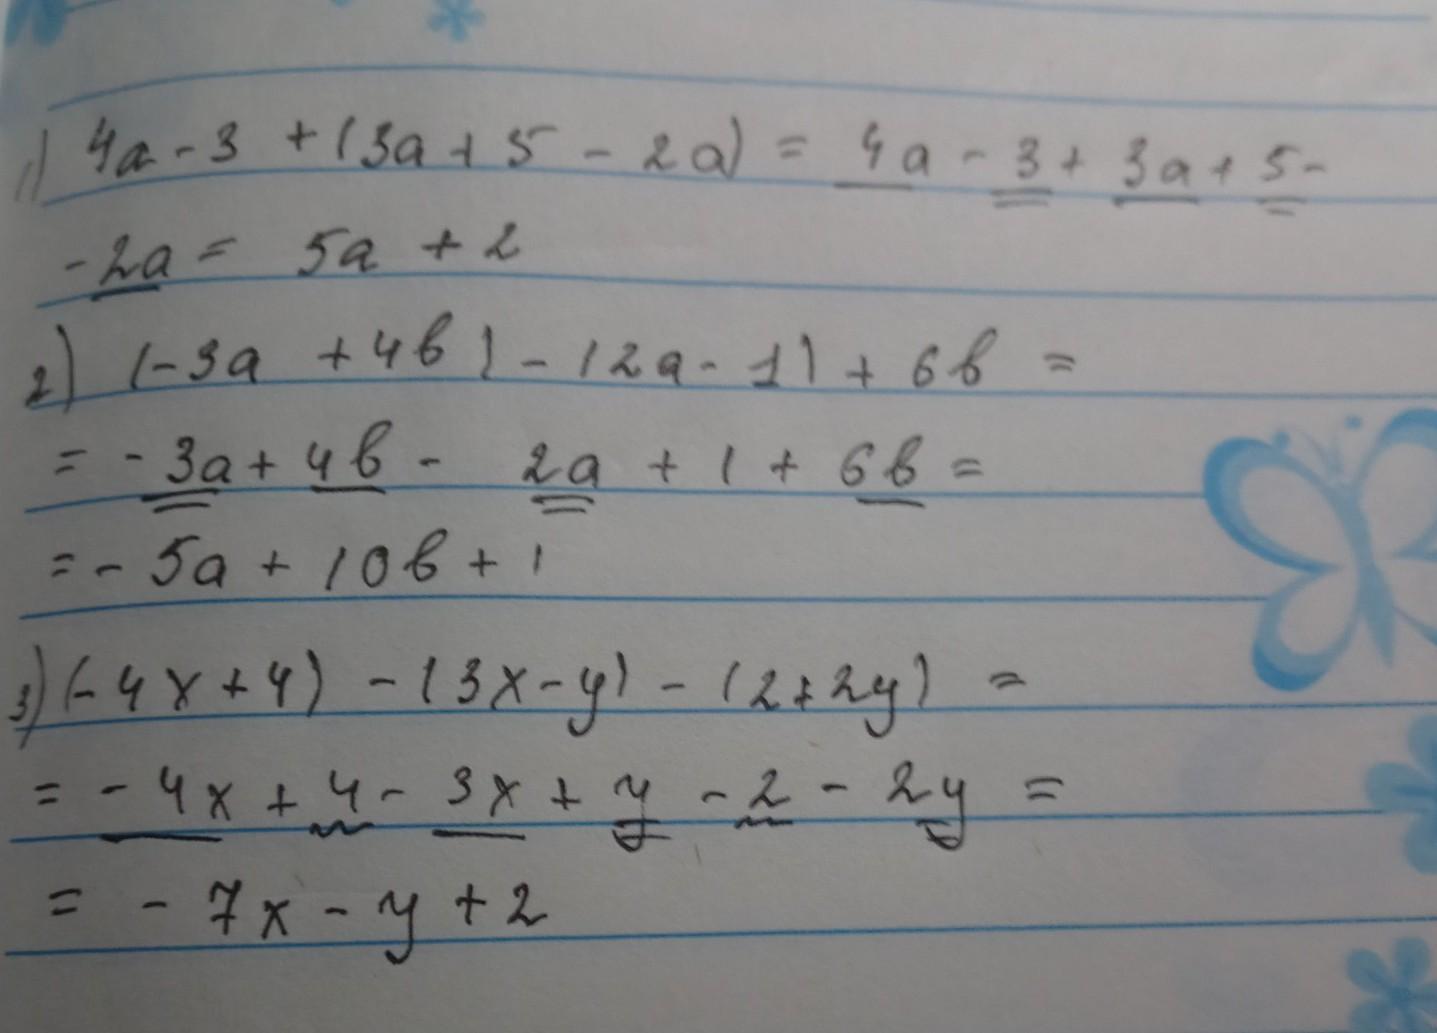 1) 4a - 3 + (3a + 5 - 2a) = 4a - 3 + 3a + 5 -
- 2a = 5a + 2
2) (-3a + 4b) - (2a - 1) + 6b =
= - 3a + 4b - 2a + 1 + 6b =
= - 5a + 10b + 1
3) (-4x + 4) - (3x - y) - (2 + 2y) =
= - 4x + 4 - 3x + y - 2 - 2y =
= - 7x - y + 2